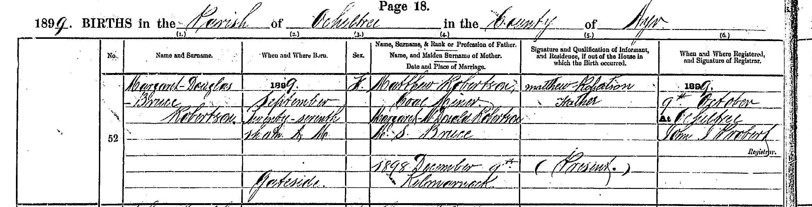 Page 18.
1899. BIRTHS in the Parish of Ochiltree in the County of Ayr
(1.) (2.) (3.) (4.) (5.) (6.)
No. Name and Surname. When and Where Born. Sex. Name, Surname, & Rank or Profession of Father. Name, and Maiden Surname of Mother. Date and Place of Marriage. Signature and Qualification of Informant, and Residence, if out of the House in which the Birth occurred. When and Where Registered, and Signature of Registrar.
52
Margaret Douglas
Bruce
Robertson
1899.
September
Twenty-seventh
M.
Gateside.
F
Matthew Robertson,
Coal Miner
Margaret Robertson
M. S. Bruce
1898 December 9th
Kilmarnock
Matthew Robertson
Father
(Present.)
1899.
9th October
At Ochiltree
John
Registrar.